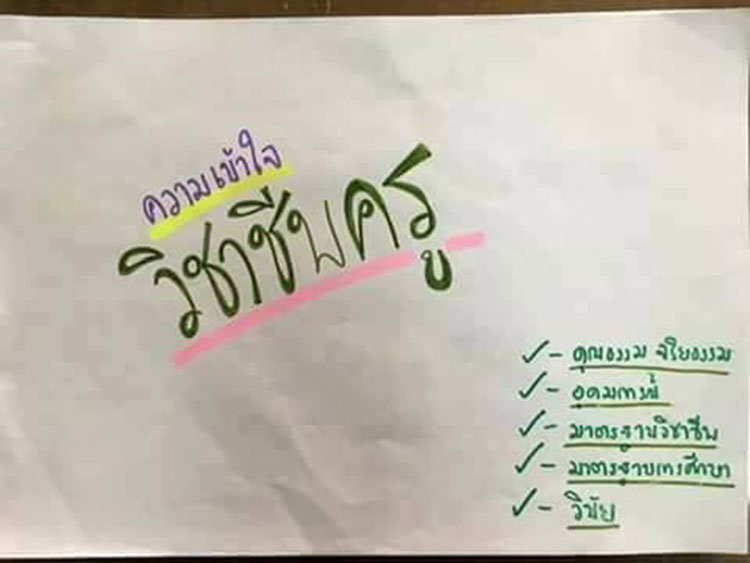 ความเข้าใจ
วิชาชีพครู
✓ - คุณธรรม จริยธรรม
✓ - อุดมการณ์
✓ - มาตรฐานวิชาชีพ
✓ - มาตรฐานการศึกษา
✓ - วินัย